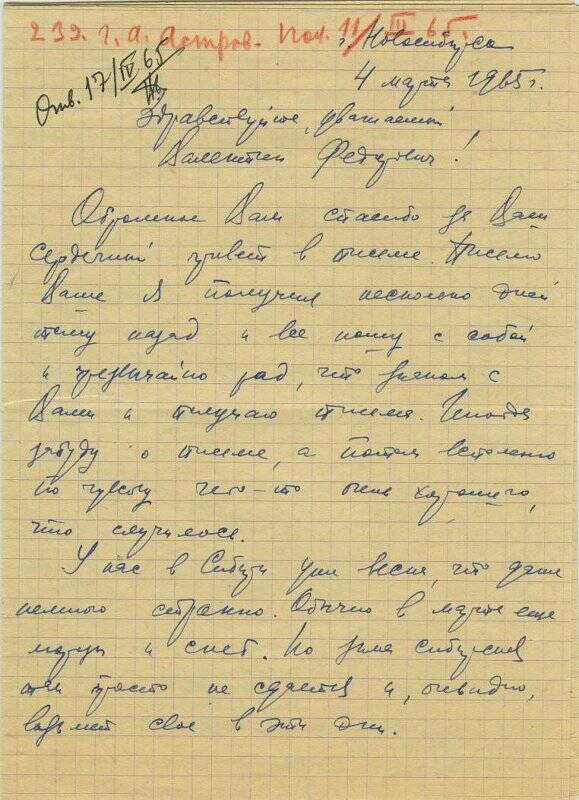 239. Г. А. Астров. Пол. 11/III 65 г.
г. Новосибирск
Отв. 17/IV 65
4 марта 1965 г.
Здравствуйте, уважаемый
Валентин Федорович!
Огромное Вам спасибо за Ваш
сердечный привет в письме. Письмо
Ваше я получил несколько дней
тому назад и все ношу с собой
и чрезвычайно рад, что знаком с
Вами и получаю письма. Иногда
забуду о письме, а потом вспомню
по чувству чего-то очень хорошего,
что случилось.
У нас в Сибири уже весна, что даже
немного странно. Обычно в марте еще
морозы и снег. Но зима сибирская
так просто не сдается и, очевидно,
возьмет свое в эти дни.